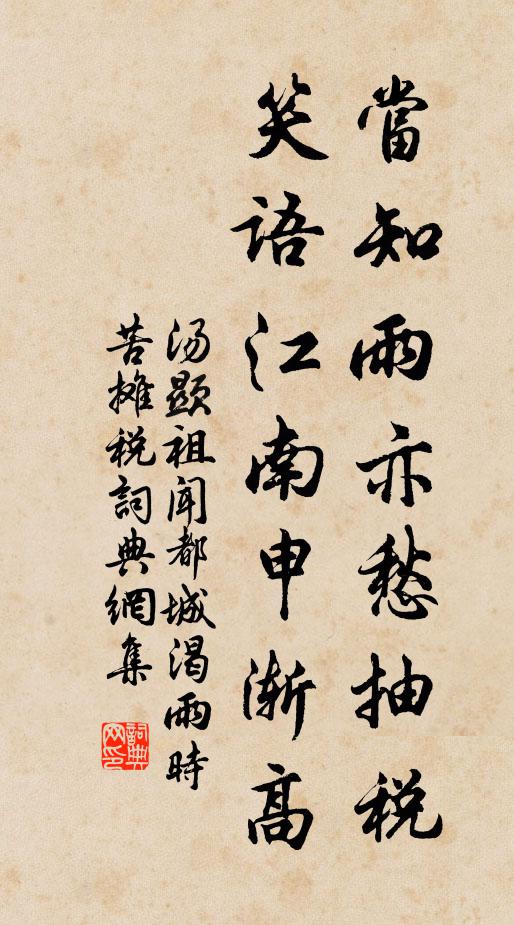 當知雨亦愁抽税
笑語江南申漸高
汤顯祖闻都城渴雨時
苦攤税詞典網集
詞典网印